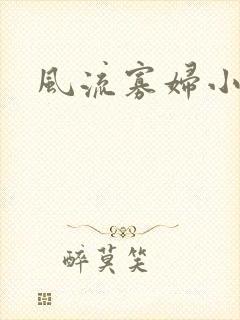 風流寡婦小
醉莫笑